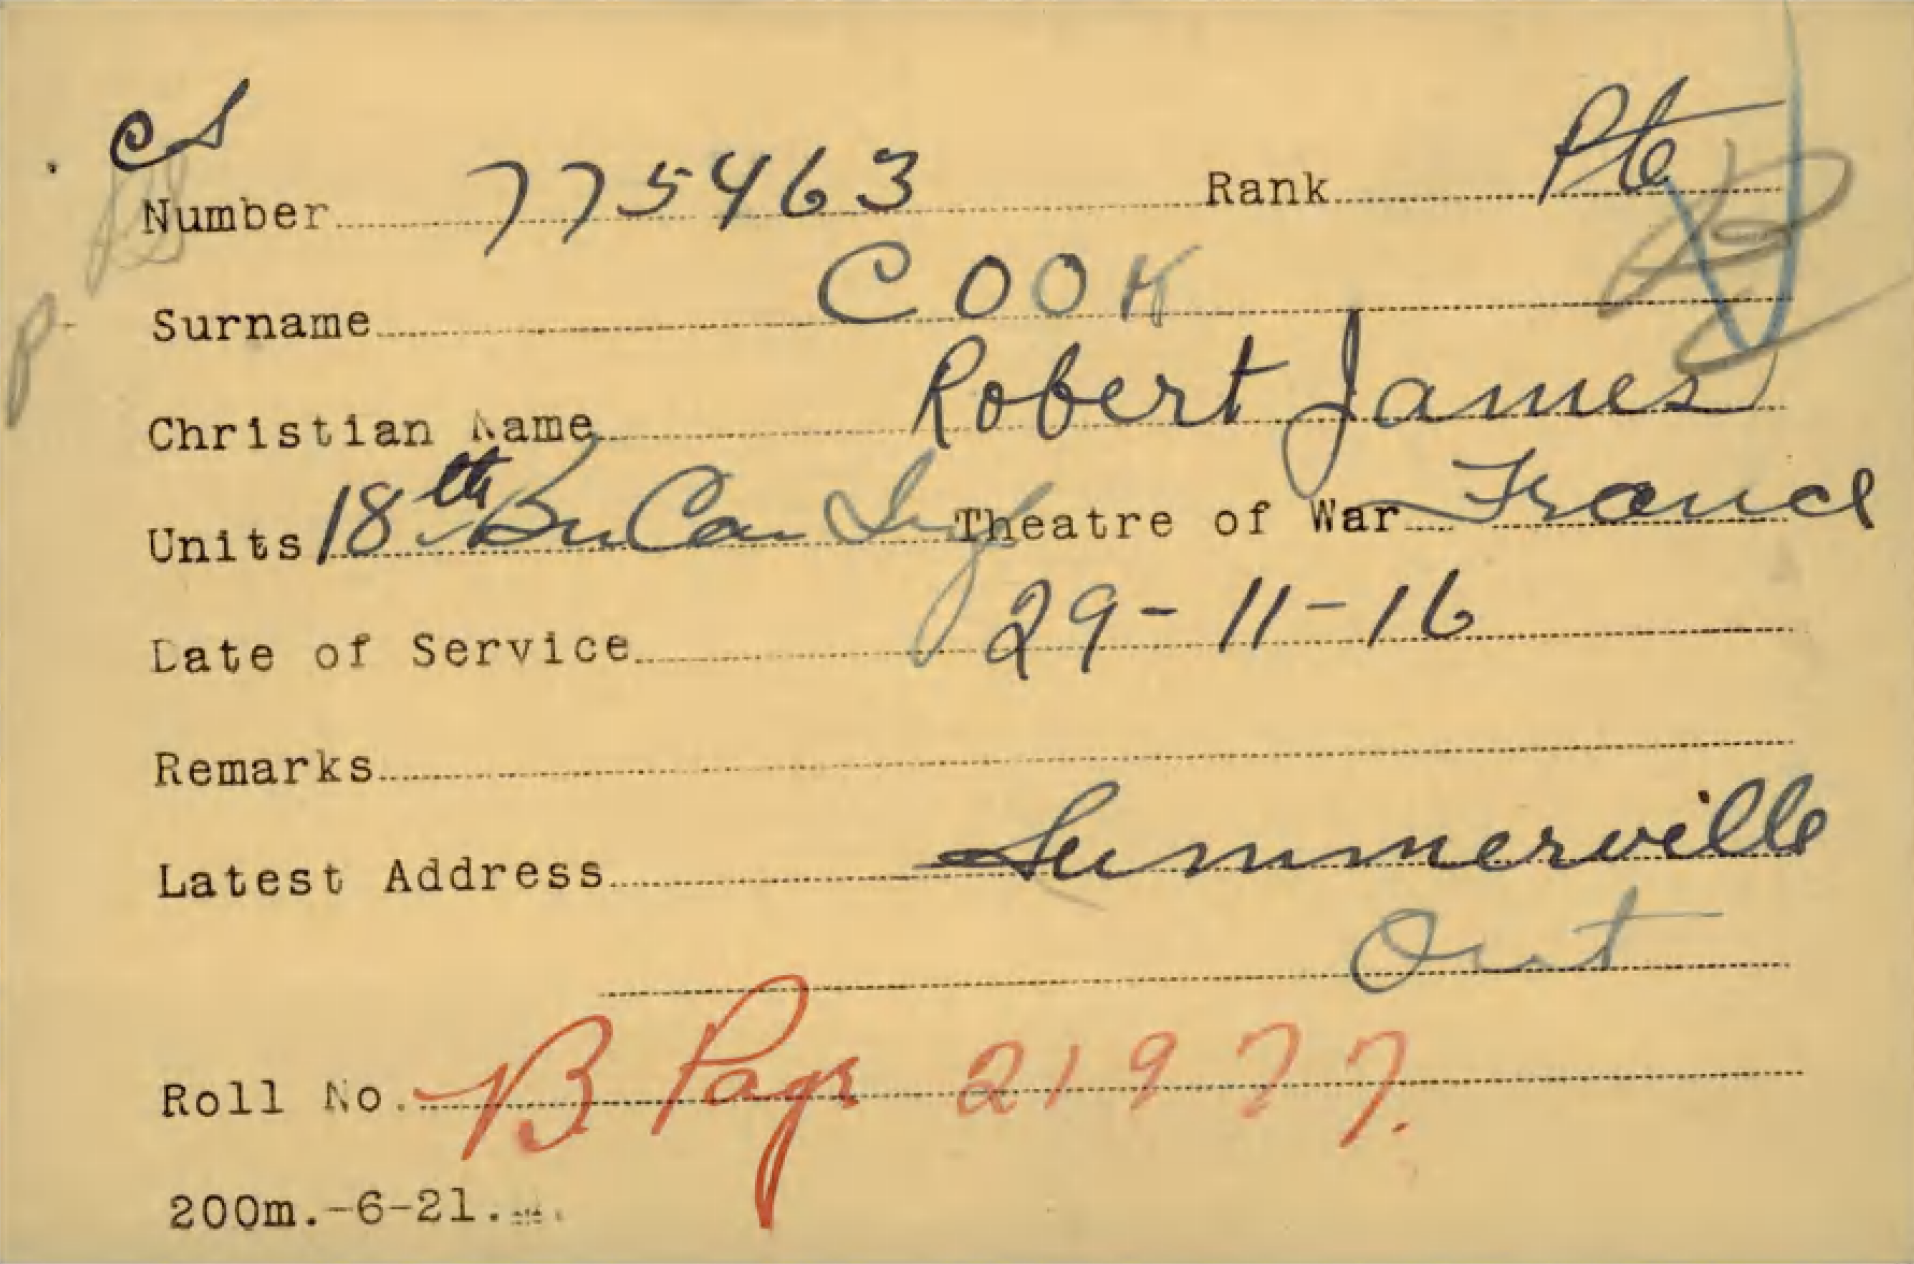 CS
Number 775463 Rank Pte
Surname COOK
Christian Name Robert James
Units 18th Bn Can Inf Theatre of War France
Date of Service 29-11-16
Remarks
Latest Address Summerville
Ont
Roll No. B Page 21977.
200m.-6-21.